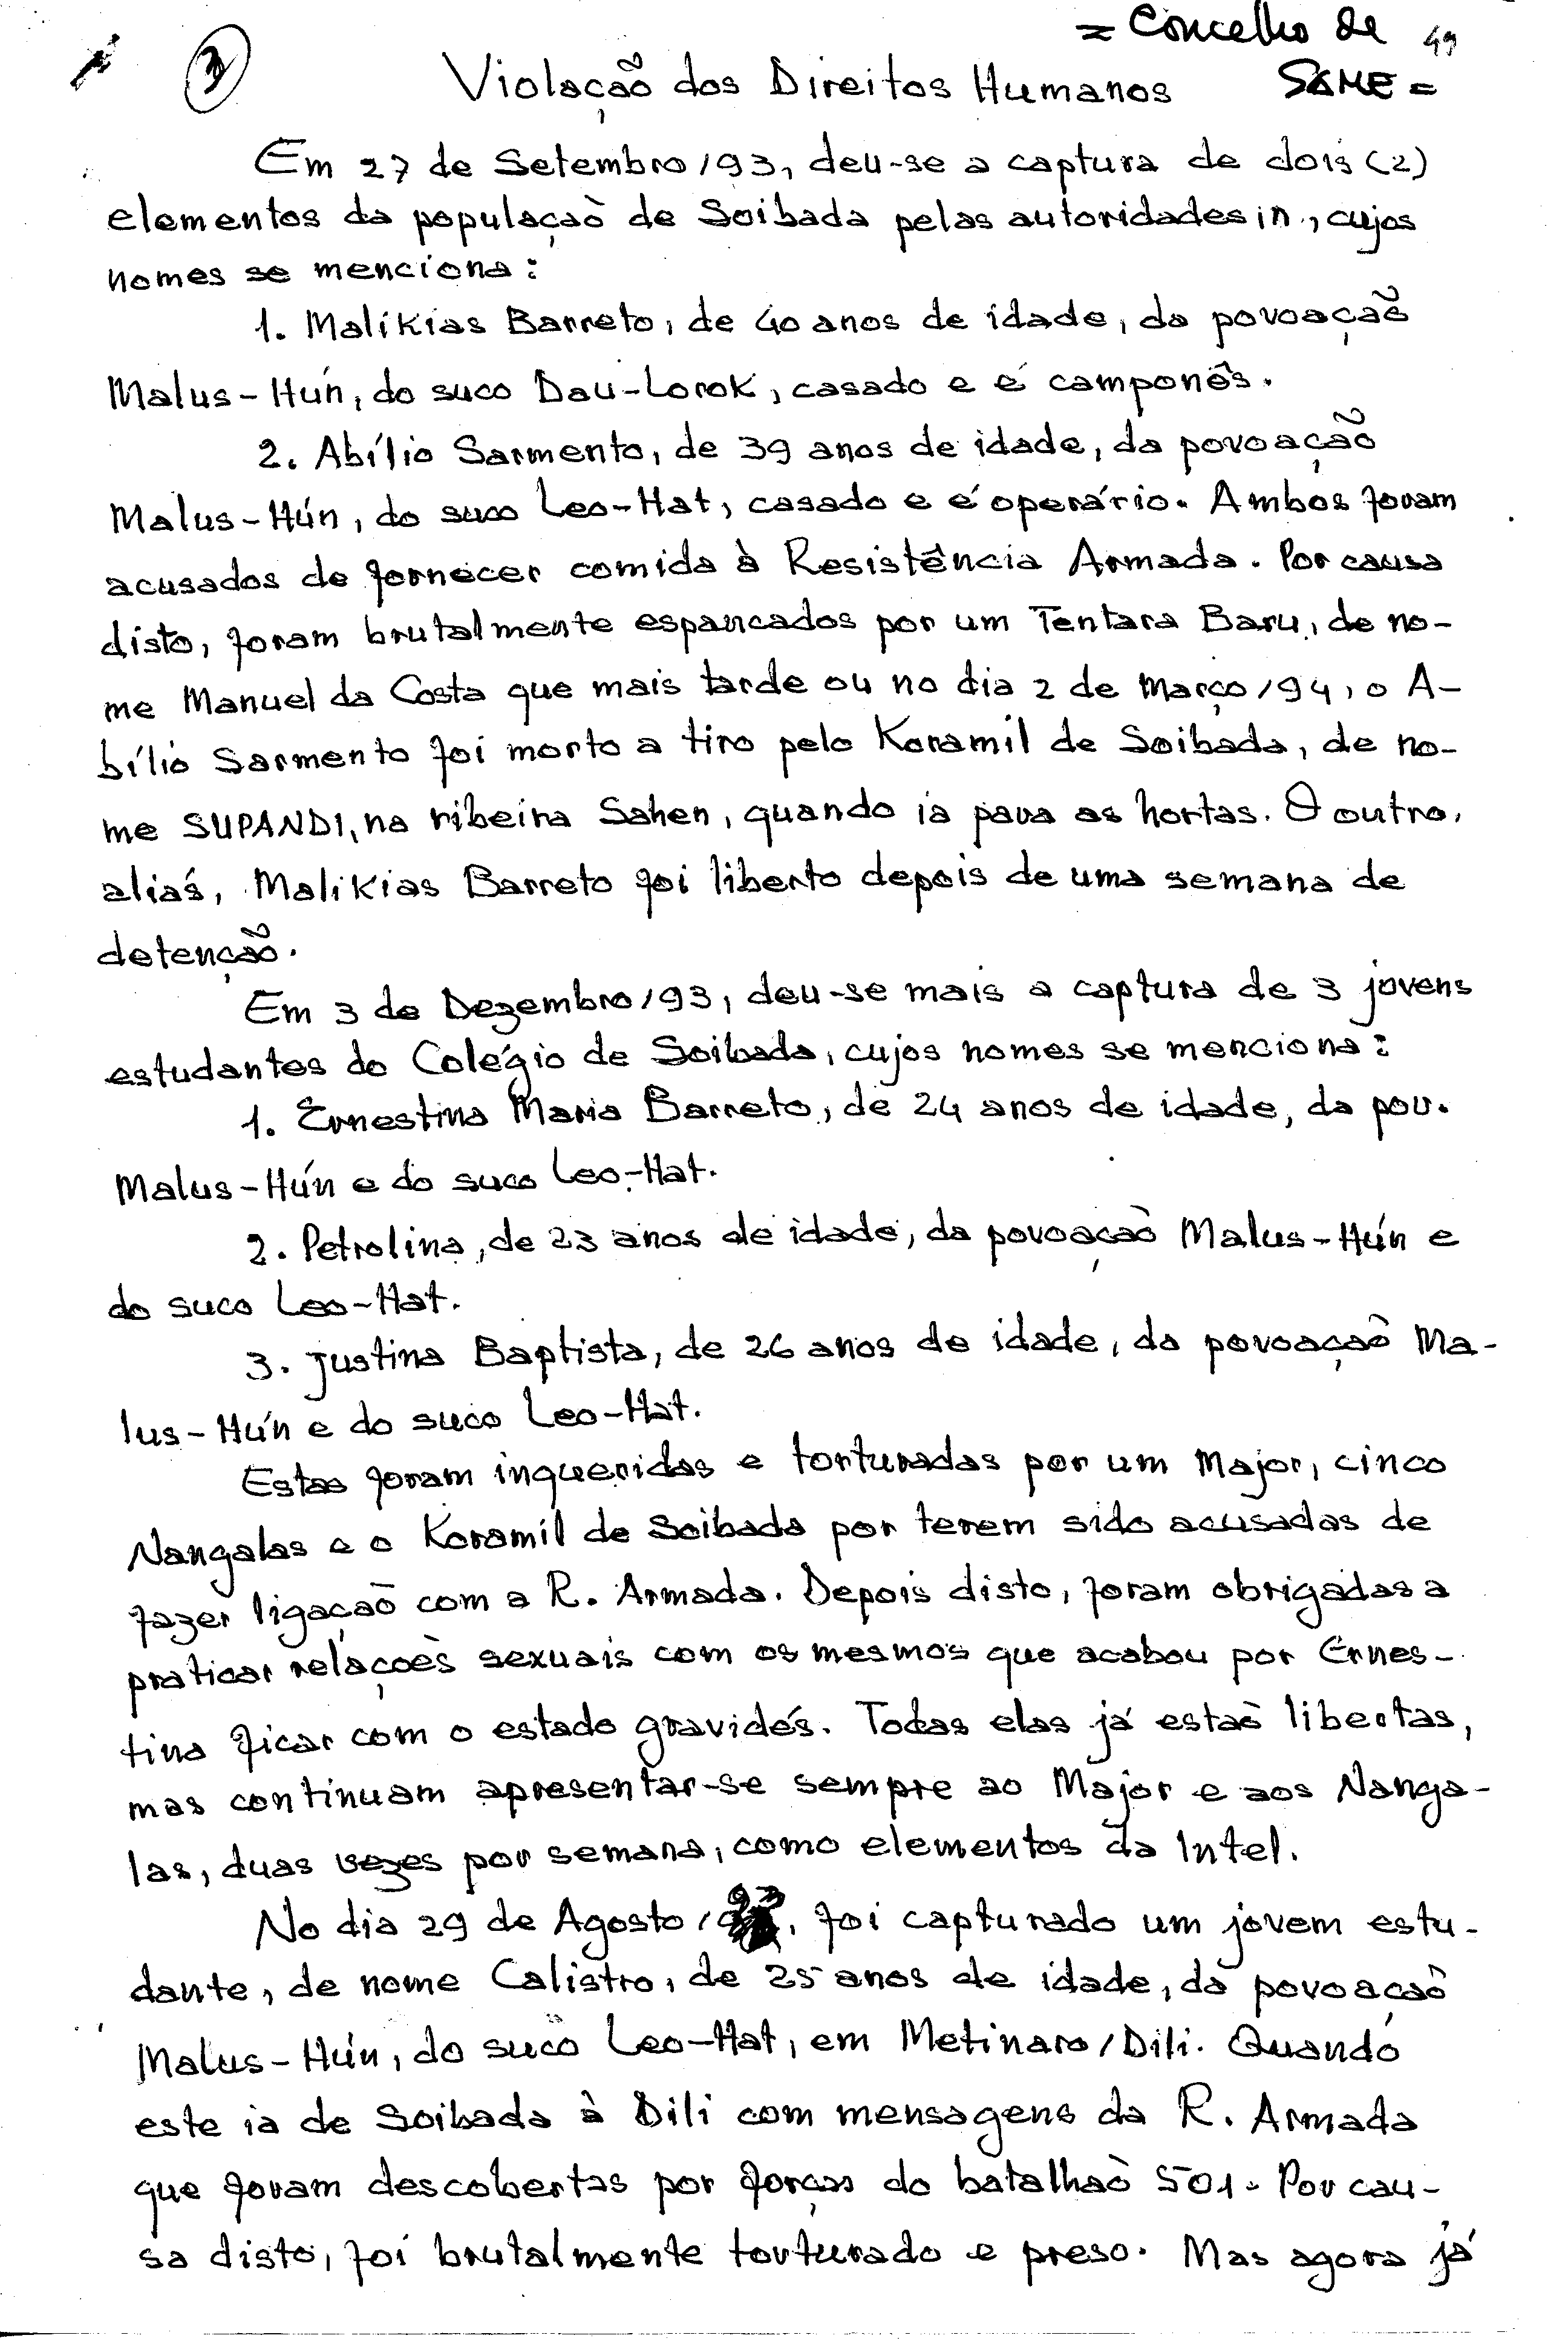 = Concelho de 49
3
Violação dos Direitos Humanos SAME =
Em 27 de Setembro/93, deu-se a captura de dois (2)
elementos da população de Soibada pelas autoridades in., cujos
nomes se menciona:
1. Malíkias Barreto, de 40 anos de idade, da povoação
Malus-Hún, do suco Dau-Lorok, casado e é camponês.
2. Abílio Sarmento, de 39 anos de idade, da povoação
Malus-Hún, do suco Leo-Hat, casado e é operário. Ambos foram
acusados de fornecer comida à Resistência Armada. Por causa
disto, foram brutalmente espancados por um Tentara Baru, de no-
me Manuel da Costa que mais tarde ou no dia 2 de Março/94, o A-
bílio Sarmento foi morto a tiro pelo Koramil de Soibada, de no-
me SUPANDI, na ribeira Sahen, quando ia para as hortas. O outro,
aliás, Malikias Barreto foi liberto depois de uma semana de
detenção.
Em 3 de Dezembro/93, deu-se mais a captura de 3 jovens
estudantes do Colégio de Soibada, cujos nomes se menciona:
1. Ernestina Maria Barreto, de 24 anos de idade, da pov.
Malus-Hún e do suco Leo-Hat.
2. Petrolina, de 23 anos de idade, da povoação Malus-Hún e
do suco Leo-Hat.
3. Justina Baptista, de 26 anos de idade, da povoação Ma-
lus-Hún e do suco Leo-Hat.
Estas foram inqueridas e torturadas por um Major, cinco
Nangalas e o Koramil de Soibada por terem sido acusadas de
fazer ligação com a R. Armada. Depois disto, foram obrigadas a
praticar relações sexuais com os mesmos que acabou por Ernes-
tina ficar com o estado gravidés. Todas elas já estão libertas,
mas continuam apresentar-se sempre ao Major e aos Nanga-
las, duas vezes por semana, como elementos da Intel.
No dia 29 de Agosto/93, foi capturado um jovem estu-
dante, de nome Calistro, de 25 anos de idade, da povoação
Malus-Hún, do suco Leo-Hat, em Metinaro/Dili. Quando
este ia de Soibada à Dili com mensagens da R. Armada
que foram descobertas por forças do batalhão 501. Por cau-
sa disto, foi brutalmente torturado e preso. Mas agora já